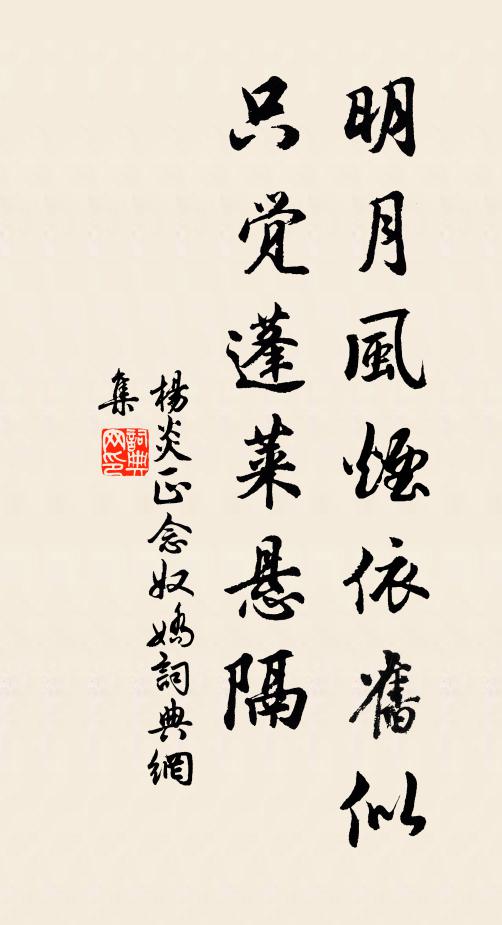 明月風煙依舊似
只觉蓬莱悬隔
楊炎正念奴嬌詞典網
集
詞典
网印